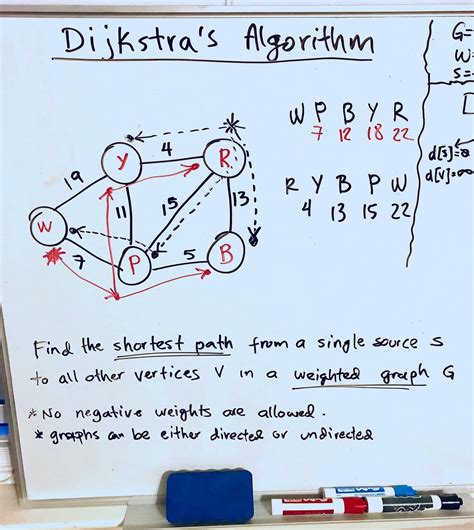 Dijkstra's Algorithm
G=
W=
S=
d[s]=0
W P B Y R
7 12 18 22
R Y B P W
4 13 15 22
Y
4
R
19
11
15
13
W
7
P
5
B
Find the shortest path from a single source s
to all other vertices V in a weighted graph G
* No negative weights are allowed.
* graphs can be either directed or undirected